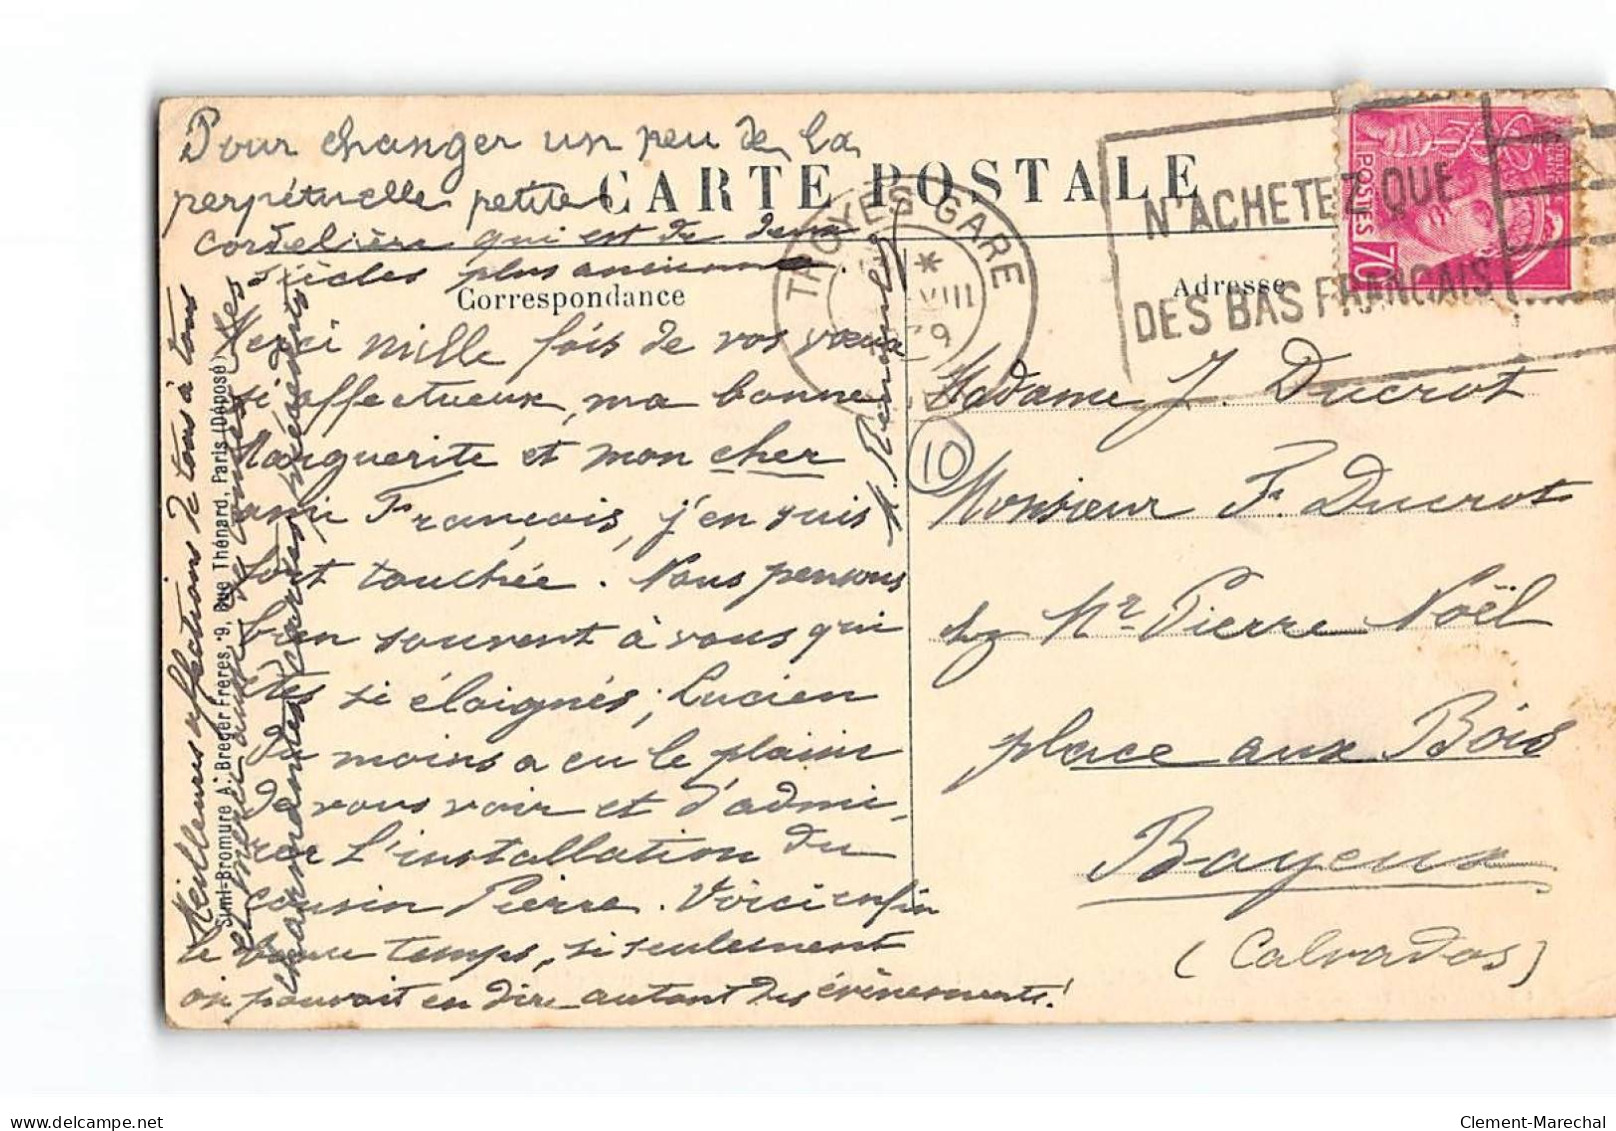 Pour changer un peu de la
perpétuelle petite
CARTE POSTALE
cordelière qui est de deux
siècles plus ancienne.
Correspondance
Adresse
TROYES GARE
*
VIII
39
N'ACHETEZ QUE
DES BAS FRANÇAIS
POSTES
70
Merci mille fois de vos vœux
si affectueux, ma bonne
Marguerite et mon cher
ami François, j'en suis
fort touchée. Nous pensons
bien souvent à vous qui
êtes si éloignés; Lucien
du moins a eu le plaisir
de vous voir et d'admi-
rer l'installation du
cousin Pierre. Voici enfin
le beau temps, si seulement
on pouvait en dire autant des évènements!
Meilleures affections de tous à tous
charmantes cartes précédentes
Simi-Bromure A. Breger Frères, 9, Rue Thénard, Paris (Déposé)
Madame J. Ducrot
10
Monsieur F. Ducrot
chez Mr Pierre Noël
place aux Bois
Bayeux
(Calvados)
delcampe.net
Clement-Marechal